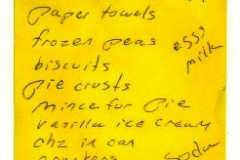 paper towels
frozen peas
biscuits
pie crusts
mince for pie
vanilla ice cream
chz in can
eggs
milk
soda